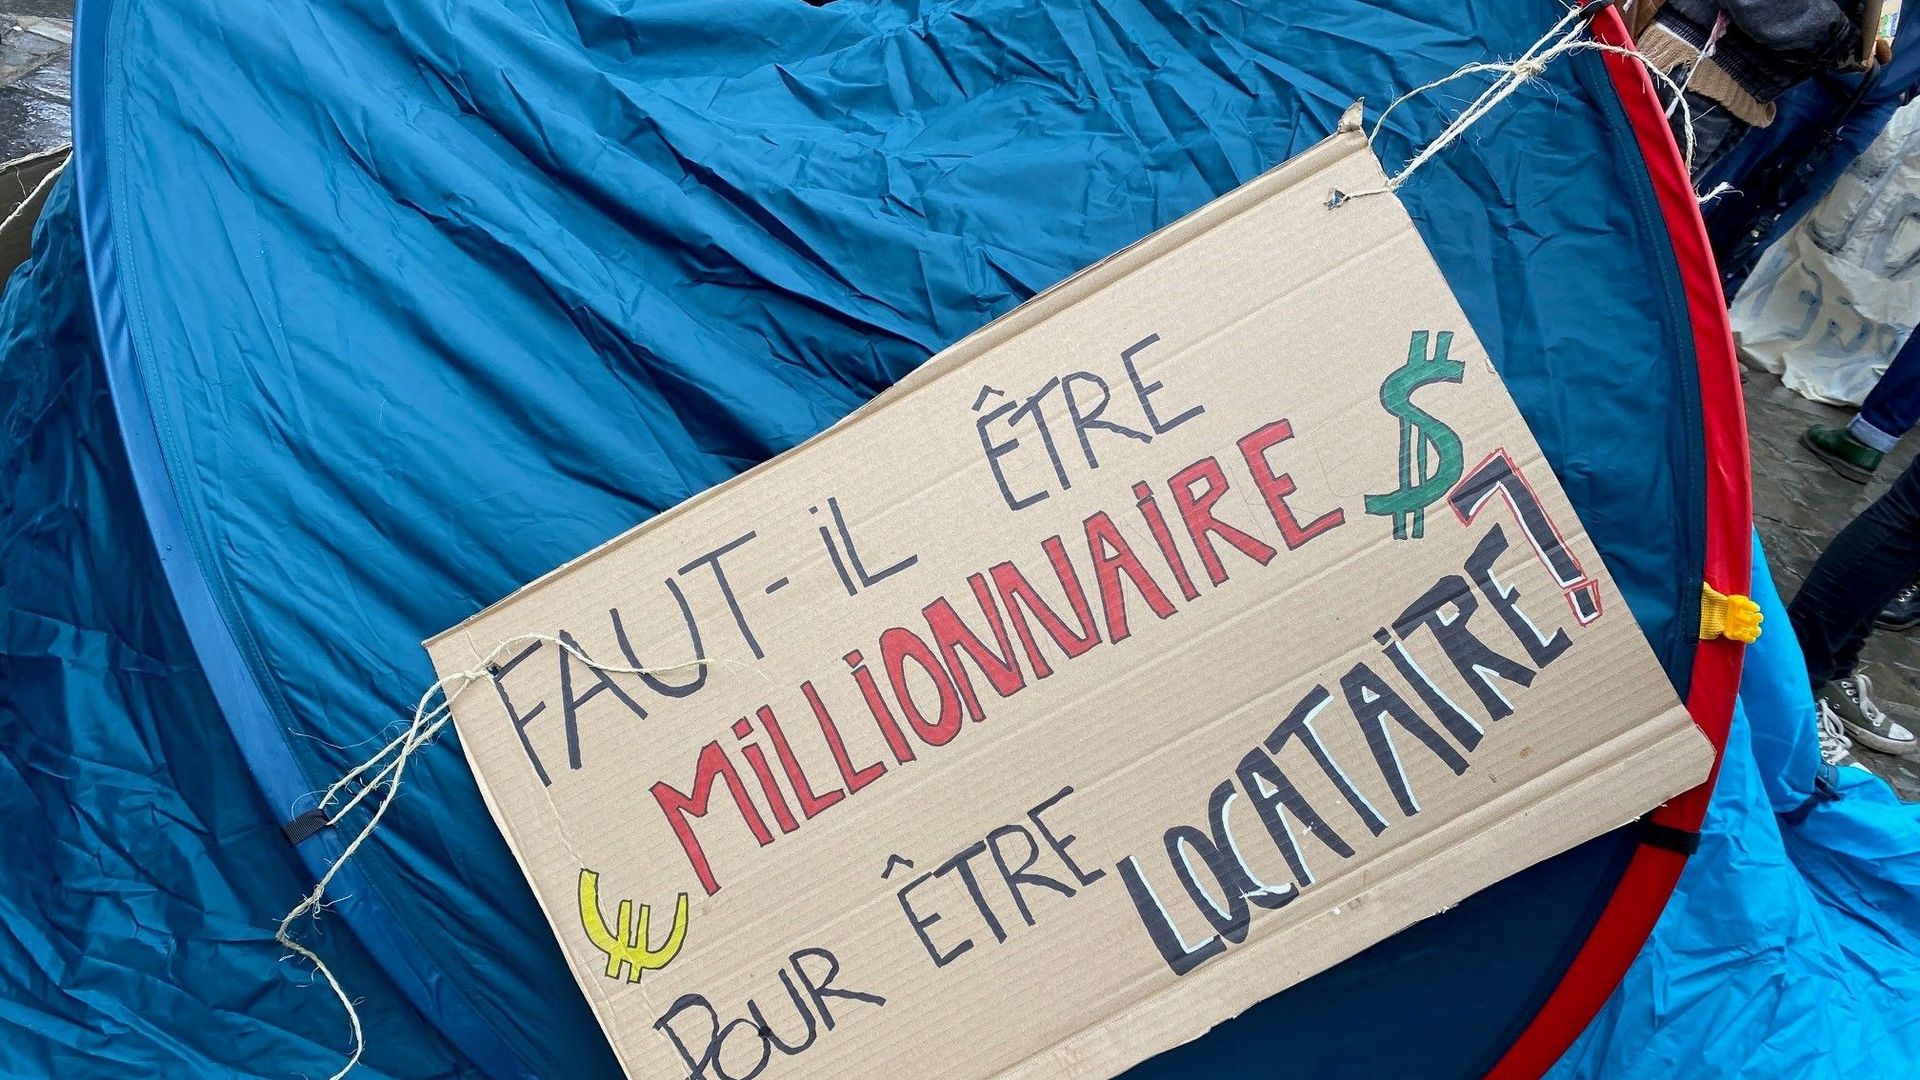 FAUT-iL ÊTRE
MiLLiONNAiRE $
€
POUR ÊTRE LOCATAiRE!